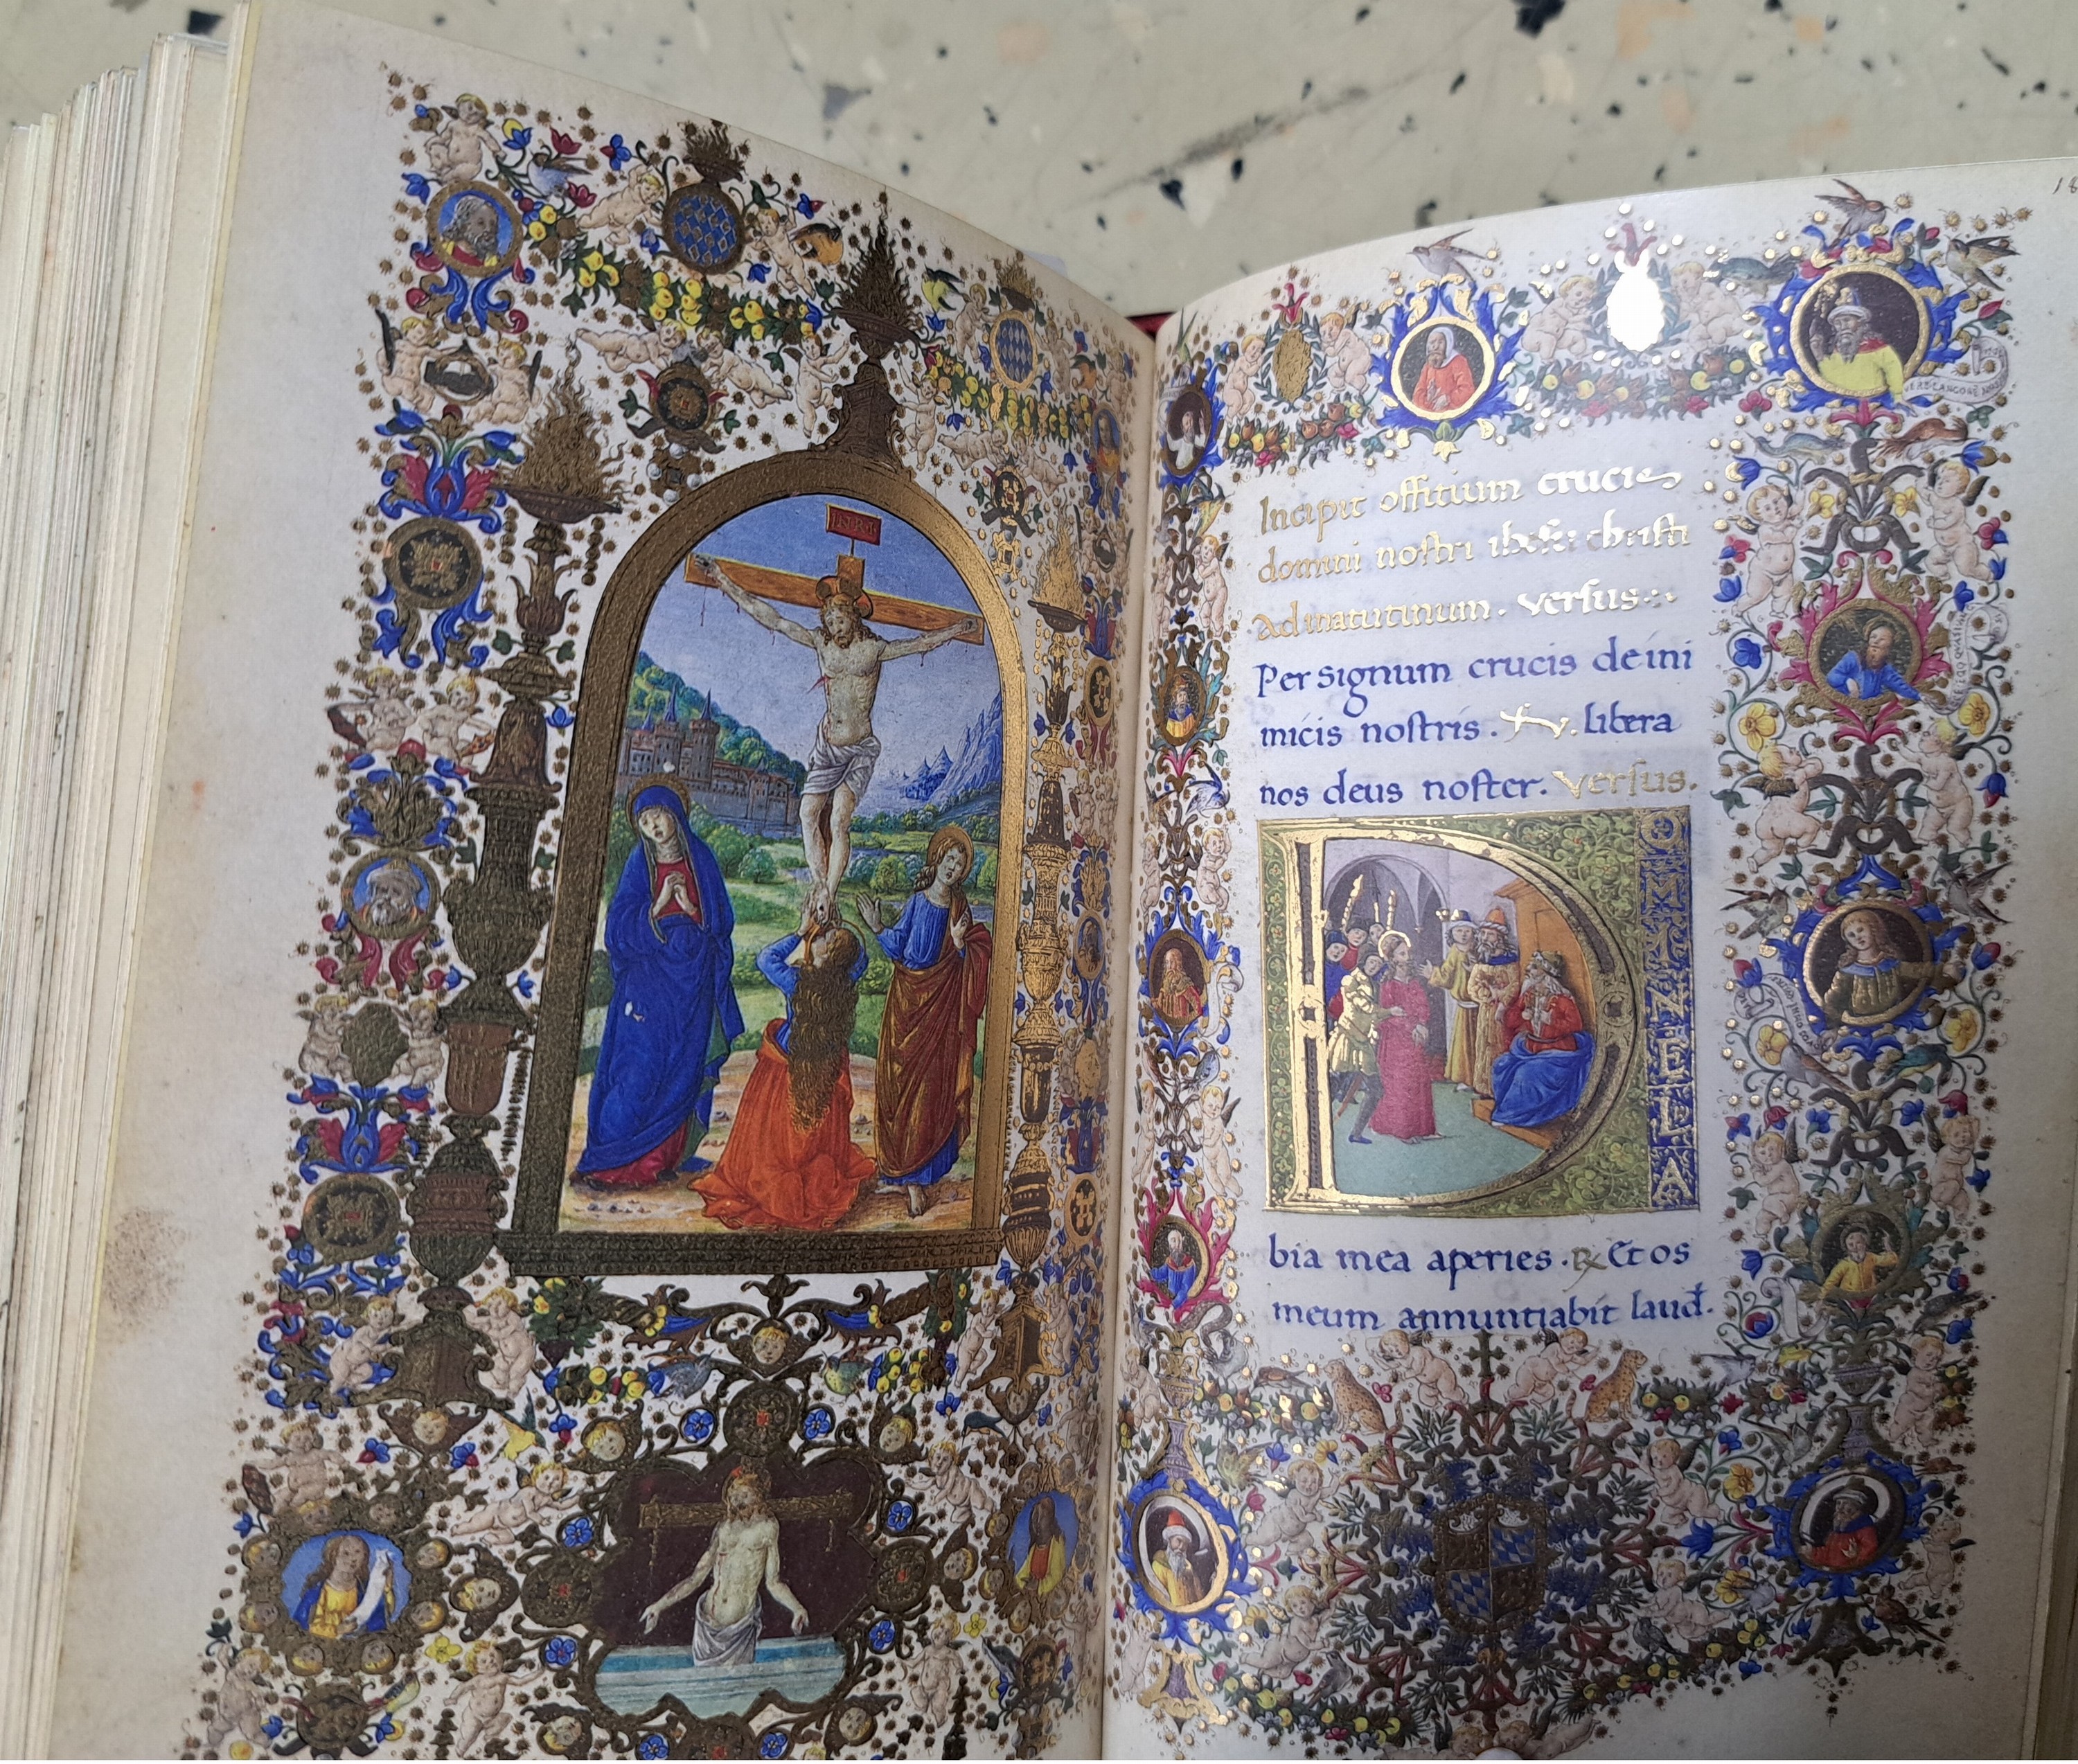 I.N.R.I.
18
Incipit offitium crucis
domini nostri ihesu christi
Ad matutinum. versus.
Per signum crucis de ini
micis nostris. libera
nos deus noster. versus.
DOMINE LA
bia mea aperies. ℟ Et os
meum annuntiabit laud.